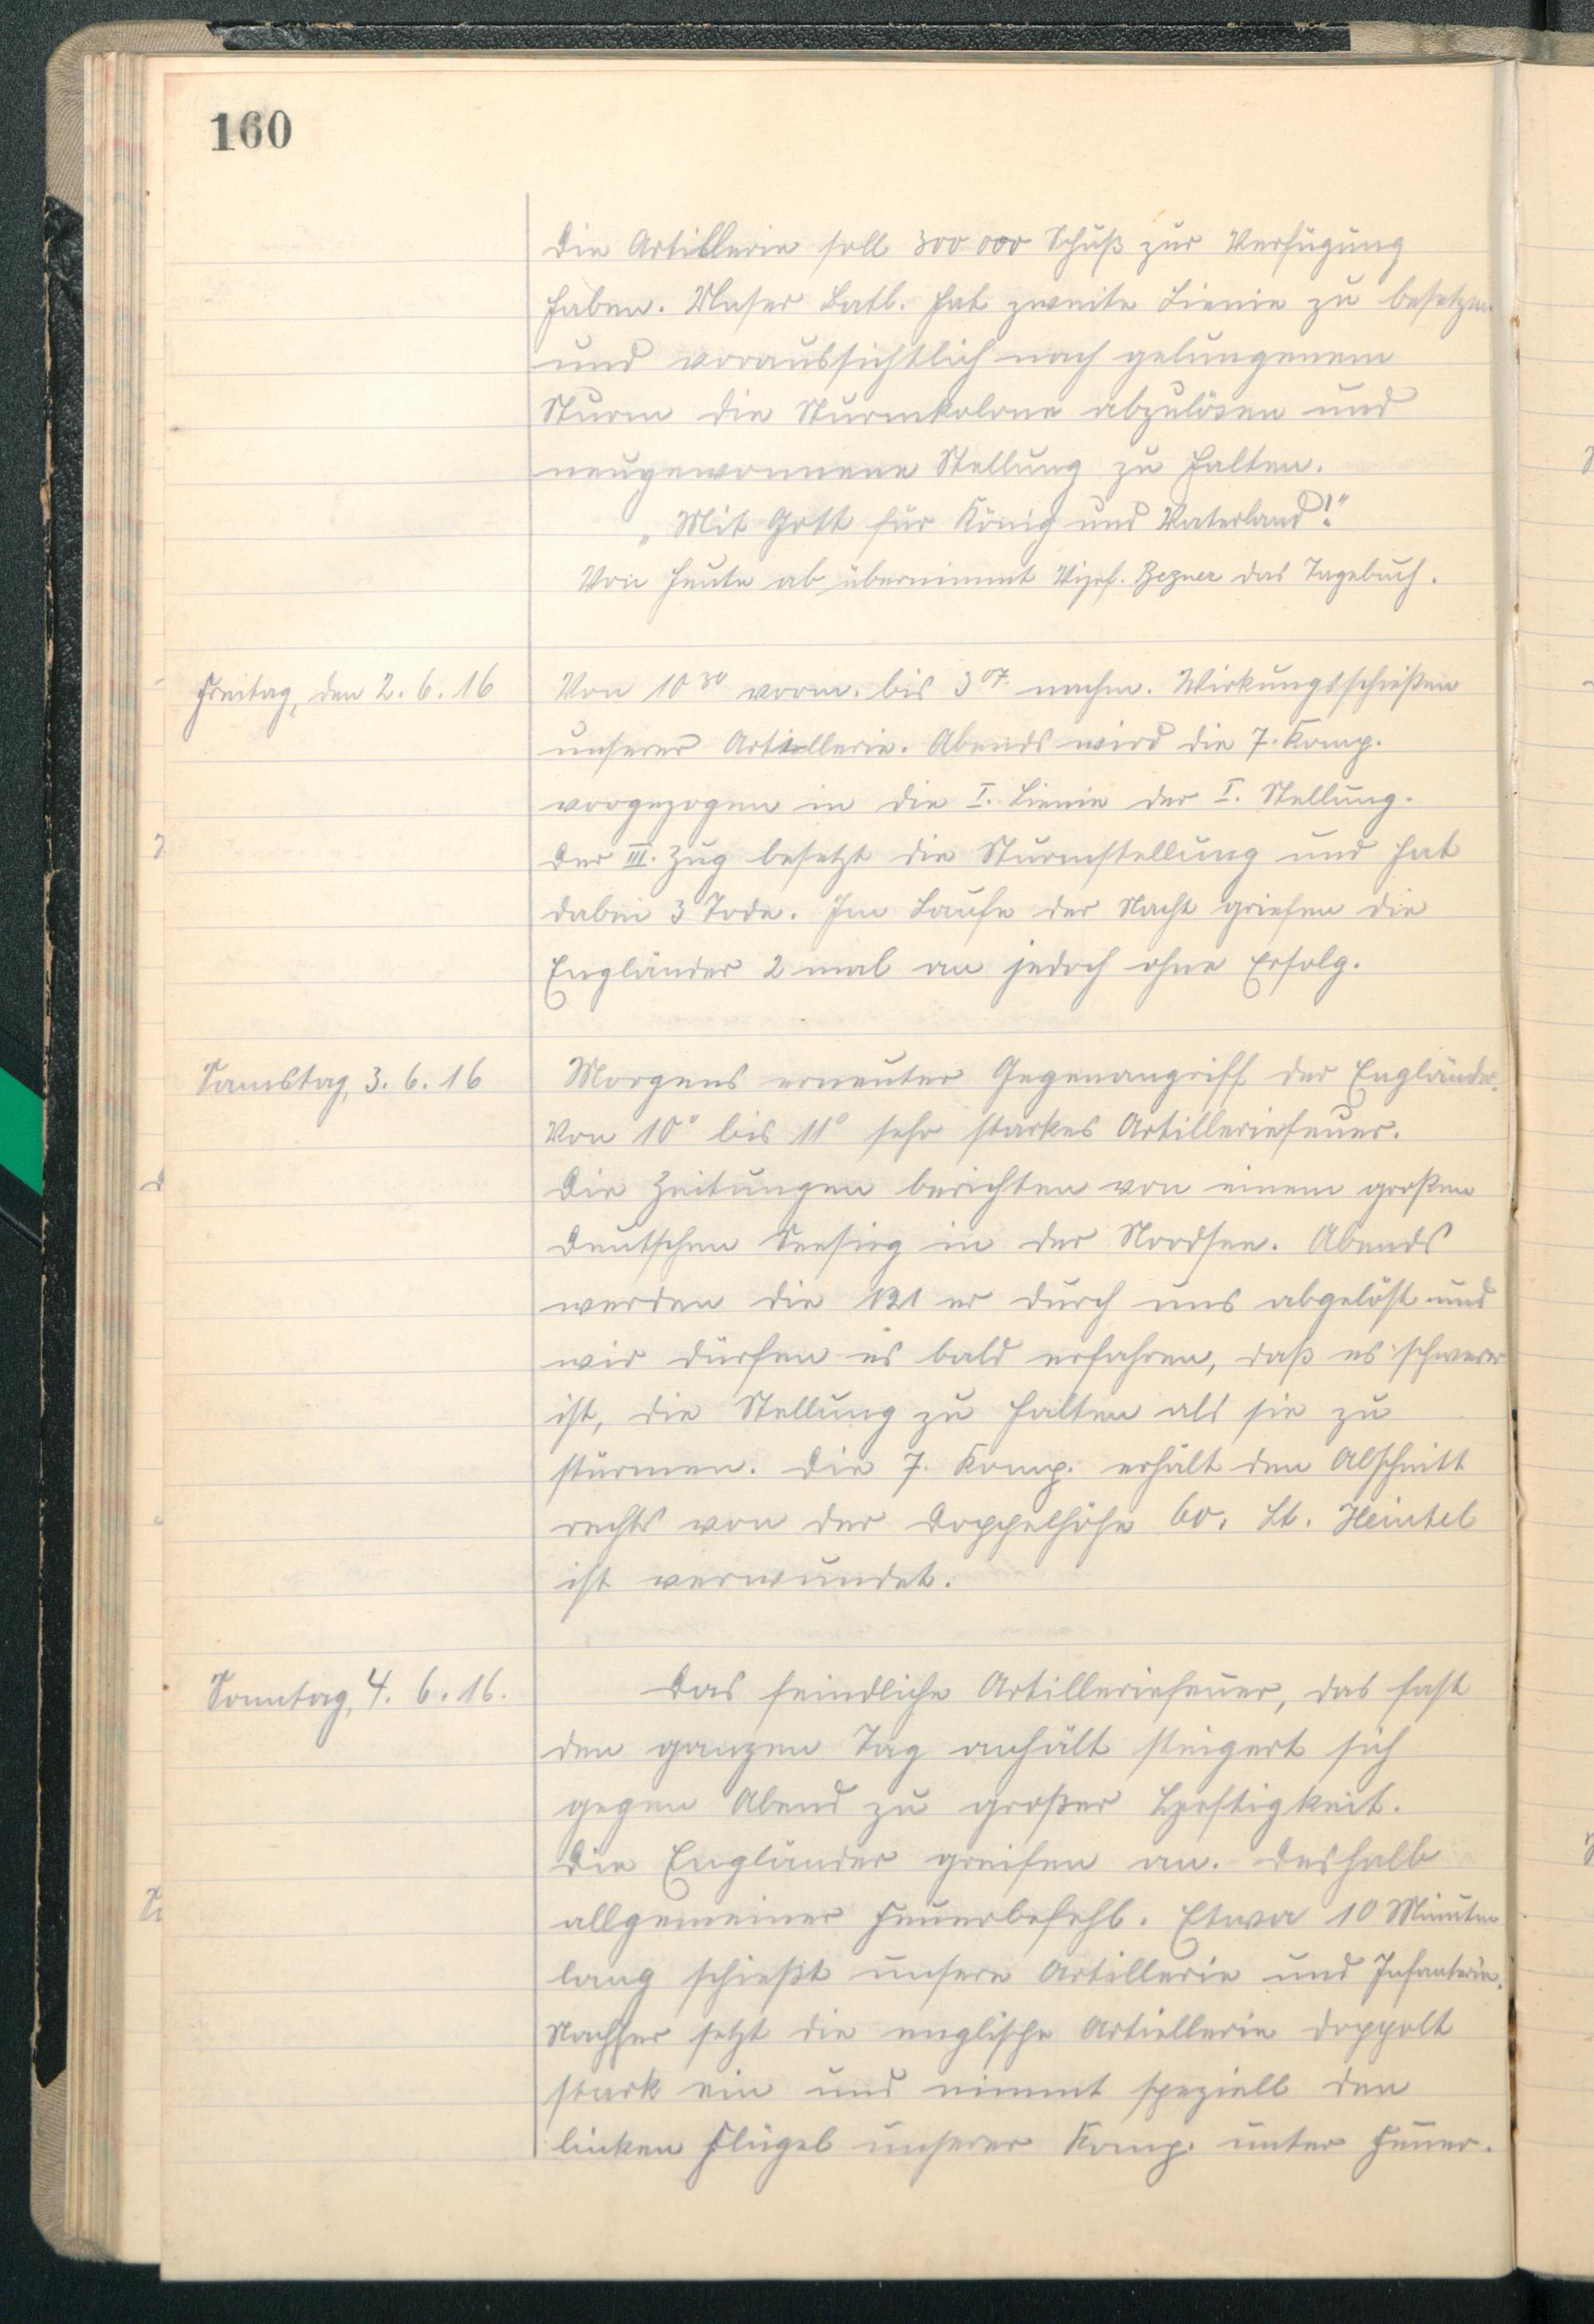 160
Die Artillerie soll 300 000 Schuß zur Verfügung
haben. Unser Batl. hat zweite Lienie zu besetzen
und voraussichtlich nach gelungenem
Sturm die Sturmkolone abzulösen und
neugewonnene Stellung zu halten.
„Mit Gott für König und Vaterland!"
Von heute ab übernimmt Vizef. Bezner das Tagebuch.
Freitag, den 2. 6. 16
Von 10 30 vorm. bis 3 07 nachm. Wirkungsschießen
unserer Artillerie. Abends wird die 7. Komp.
vorgezogen in die I. Lienie der I. Stellung.
Der III. Zug besetzt die Sturmstellung und hat
dabei 3 Tode. Im Laufe der Nacht griefen die
Engländer 2 mal an jedoch ohne Erfolg.
Samstag, 3. 6. 16
Morgens erneuter Gegenangriff der Engländer.
Von 10° bis 11° sehr starkes Artilleriefeuer.
Die Zeitungen berichten von einem großen
deutschen Seesieg in der Nordsee. Abends
werden die 121 er durch uns abgelöst und
wir dürfen es bald erfahren, daß es schwerer
ist, die Stellung zu halten als sie zu
stürmen. Die 7. Komp. erhält den Abschnitt
rechts von der Doppelhöhe 60. Lt. Heintel
ist verwundet.
Sonntag, 4. 6. 16.
Das feindliche Artilleriefeuer, das fast
den ganzen Tag anhält steigert sich
gegen Abend zu großer Heftigkeit.
Die Engländer greifen an. Deshalb
allgemeiner Feuerbefehl. Etwa 10 Minuten
lang schießt unsere Artillerie und Infanterie.
Nachher setzt die englische Artiellerie doppelt
stark ein und nimmt speziell den
linken Flügel unserer Komp. unter Feuer.